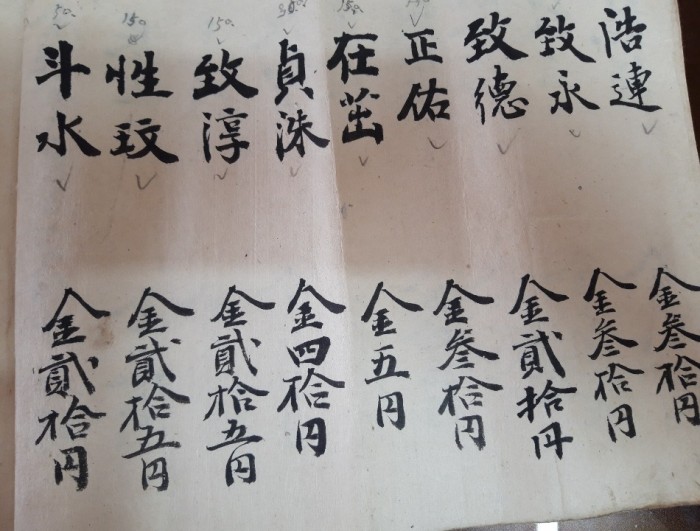 浩連 金叁拾円
致永 金叁拾円
致德 金貳拾円
正佑 金叁拾円
在茁 金五円
貞洙 金四拾円
致淳 金貳拾五円
性玟 金貳拾五円
斗水 金貳拾円